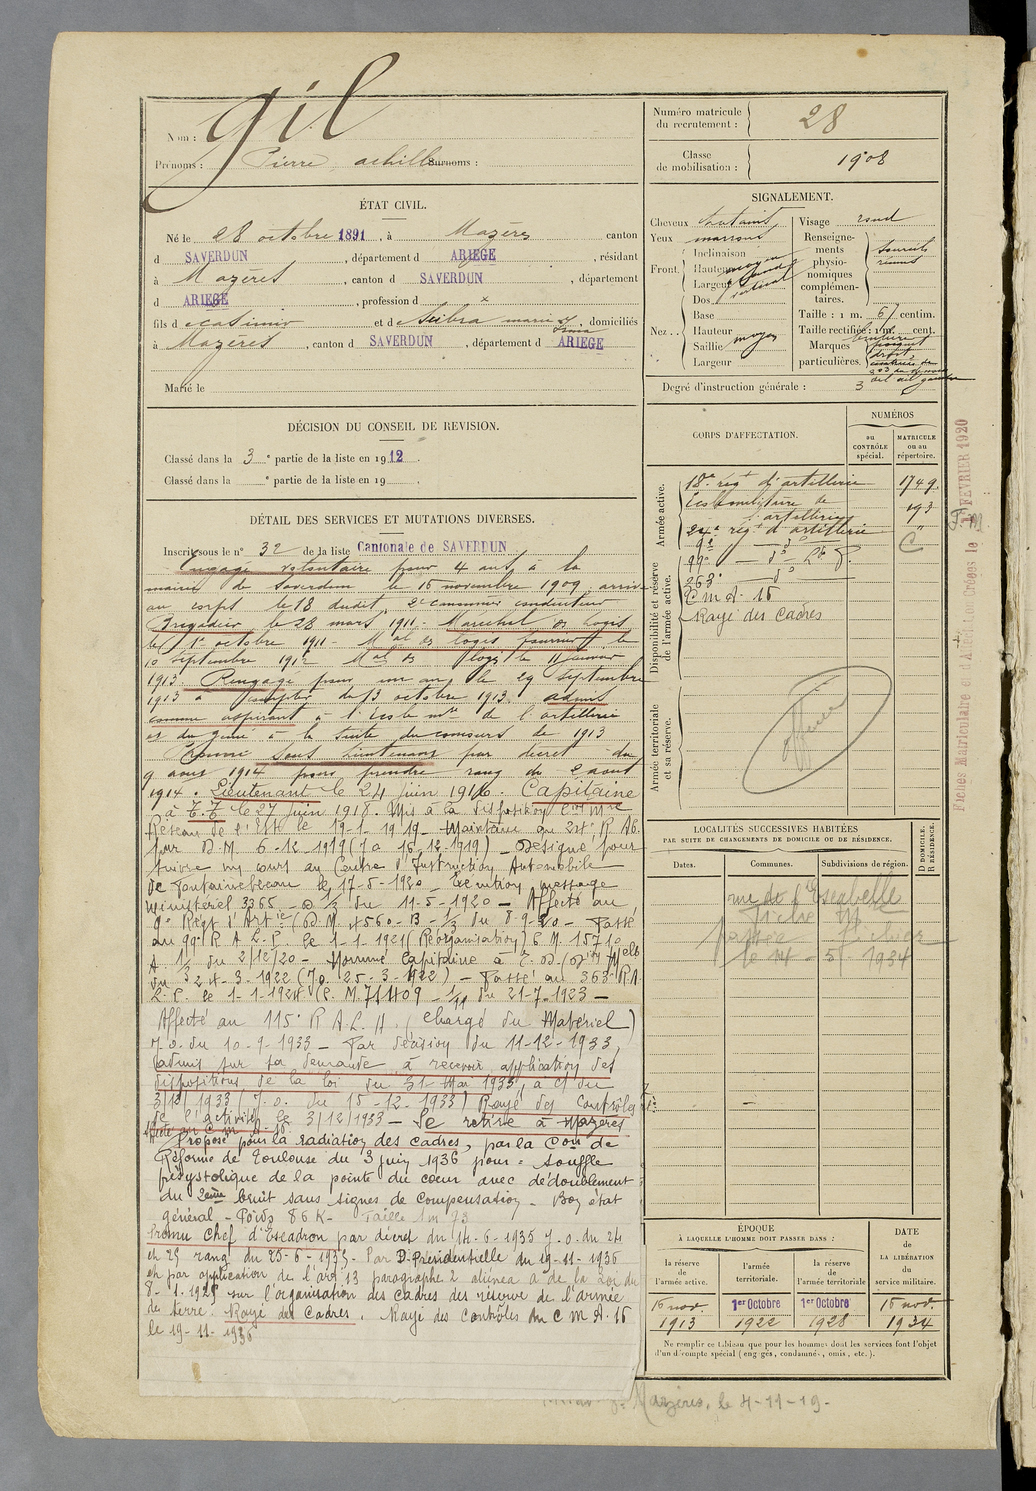 Nom : Gil
Prénoms : Pierre Achille Surnoms :
Numéro matricule du recrutement : 28
Classe de mobilisation : 1908
ÉTAT CIVIL.
Né le 28 octobre 1891, à Mazères canton
d SAVERDUN, département d ARIEGE, résidant
à Mazères, canton d SAVERDUN, département
d ARIEGE, profession d x
fils de Casimir et de Subra Marie, domiciliés
à Mazères, canton d SAVERDUN, département d ARIEGE
Marié le
SIGNALEMENT.
Cheveux chatains
Yeux marrons
Front Inclinaison
Hauteur moyen
Largeur
Nez Dos
Base
Hauteur
Saillie moyen
Largeur
Visage rond
Renseignements physionomiques complémentaires. sourcils réunis
Taille : 1 m. 67 centim.
Taille rectifiée : 1 m. cent.
Marques particulières. poignet droit
Degré d'instruction générale : 3
DÉCISION DU CONSEIL DE REVISION.
Classé dans la 3e partie de la liste en 1912.
Classé dans la e partie de la liste en 19
DÉTAIL DES SERVICES ET MUTATIONS DIVERSES.
Inscrit sous le n° 32 de la liste Cantonale de SAVERDUN
Engagé volontaire pour 4 ans, à la
mairie de Saverdun le 15 novembre 1909, arrivé
au corps le 18 dudit, 2e canonnier conducteur
Brigadier le 28 mars 1911. Maréchal des logis
le 1er octobre 1911. Mal des logis fourrier le
10 septembre 1912 Mal des logis le 11 janvier
1913. Rengagé pour un an le 29 septembre
1913 à compter du 13 octobre 1913. admis
comme aspirant à l'école mre de l'artillerie
et du génie à la suite du concours de 1913
Promu sous lieutenant par décret du
9 aout 1914 pour prendre rang du 2 aout
1914. Lieutenant le 24 juin 1916. Capitaine
à T.T. le 27 juin 1918. Mis à la disposition
Réseau de l'Est le 19-1-1919 – Maintenu au 24e R.A.C.
par D.M. 6-12-1919 (J.O. 16-12-1919) – Désigné pour
suivre un cours au Centre d'Instruction Automobile
de Fontainebleau le 17-5-1920 – Exécution message
ministériel 3365 – D 1/3 du 11-5-1920 – Affecté au
9e Régt d'Artie (D.M. 4560-B-1/3 du 8-9-20 – Passé
au 99e R.A.L.P. le 1-1-1921 (Réorganisation) C.M. 15710
A. 1/3 du 2/12/20 – Nommé Capitaine à T.D. (Don Melle
du 24-3-1922 (J.O. 25-3-1922) – Passé au 363e R.A.
L.P. le 1-1-1924 (C.M. 71409 – 1/11 du 21-7-1923 –
Affecté au 115e R.A.L.H. (Chargé du Matériel)
J.O. du 10-9-1933 – Par décision du 11-12-1933,
admis sur sa demande à recevoir application des
dispositions de la loi du 31 Mai 1933, à ct du
3/12/1933 (J.O. du 15-12-1933) Rayé des Contrôles
de l'activité le 3/12/1933 – Se retire à Mazères
Affecté au C M A 16
Proposé pour la radiation des cadres, par la Con de
Réforme de Toulouse du 3 juin 1936 pour = souffle
présystolique de la pointe du cœur avec dédoublement
du 2eme bruit sans signes de compensation – Bon état
général – Poids 86 K – Taille 1m 73
Promu Chef d'Escadron par décret du 14-6-1935 J.O. du 24
et 25 rang du 25-6-1935 – Par D. Présidentielle du 19-11-1936
et par application de l'art 13 paragraphe 2 alinea a de la Loi du
8-1-1925 sur l'organisation des cadres des réserve de l'armée
de terre. Rayé des Cadres. Rayé des Contrôles du C M A. 16
le 19-11-1936
CORPS D'AFFECTATION.
NUMÉROS
au CONTRÔLE spécial.
MATRICULE ou au répertoire.
Armée active.
18e régt d'artillerie 1749
Ecole militaire de l'artillerie 193
24e régt d'artillerie "
9e do C
99e do Lde P.
Disponibilité et réserve de l'armée active.
363e do
C m A. 16
Rayé des Cadres
Armée territoriale et sa réserve.
officier
LOCALITÉS SUCCESSIVES HABITÉES
PAR SUITE DE CHANGEMENTS DE DOMICILE OU DE RÉSIDENCE.
Dates.
Communes.
Subdivisions de région.
D DOMICILE. R RÉSIDENCE.
rue de l'Escabelle
le 14-5-1934
ÉPOQUE
À LAQUELLE L'HOMME DOIT PASSER DANS :
la réserve de l'armée active.
l'armée territoriale.
la réserve de l'armée territoriale
DATE de LA LIBÉRATION du service militaire.
15 nov. 1913
1er Octobre 1922
1er Octobre 1928
15 nov. 1934
Ne remplir ce tableau que pour les hommes dont les services font l'objet
d'un décompte spécial (engagés, condamnés, omis, etc.).
Mazères, le 4-11-19.
Fiches Matriculaire et d'Affection Créées le FEVRIER 1920